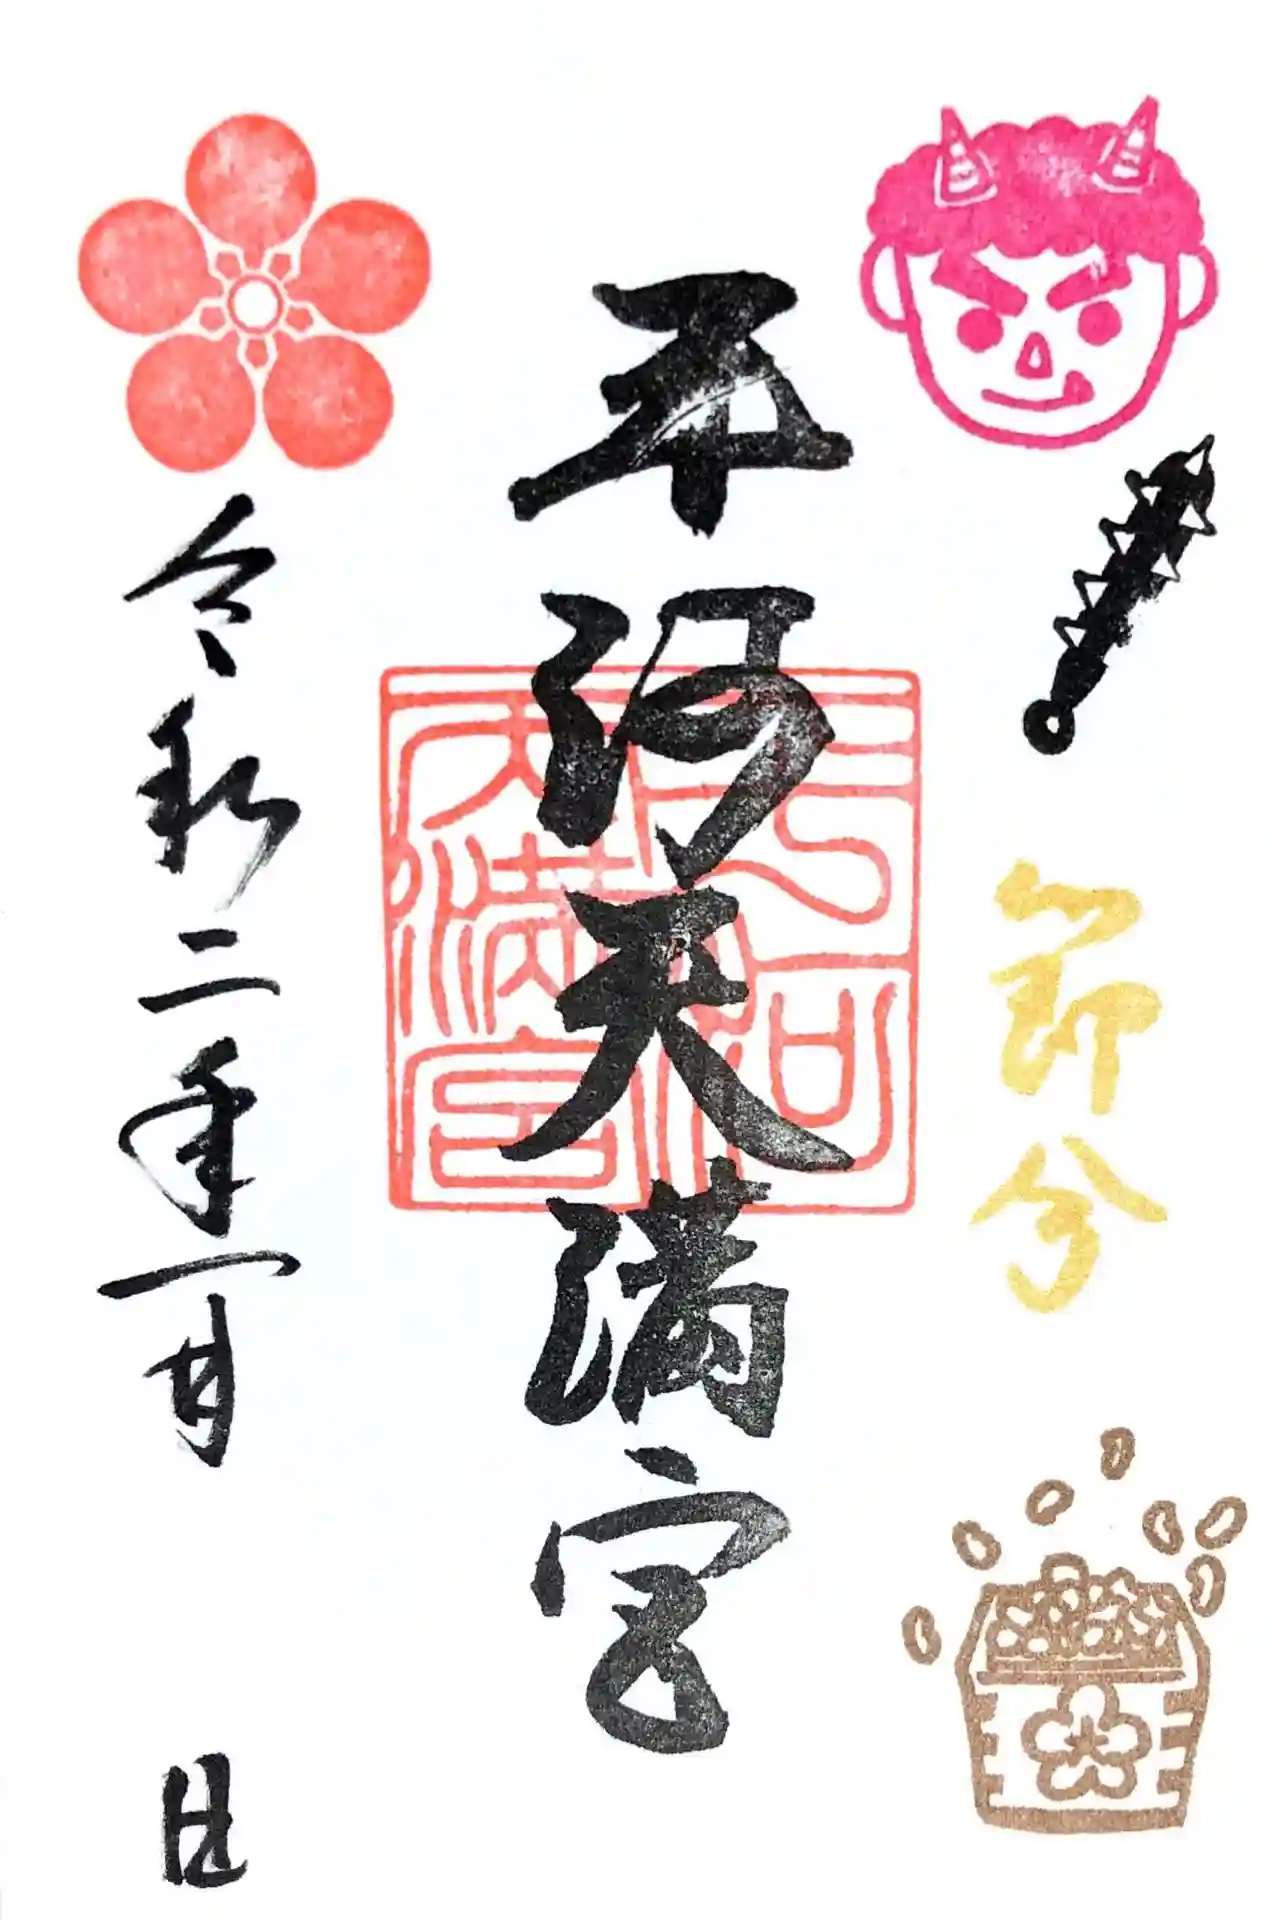 節分
平河天満宮
平河天満宮
令和二年一月 日